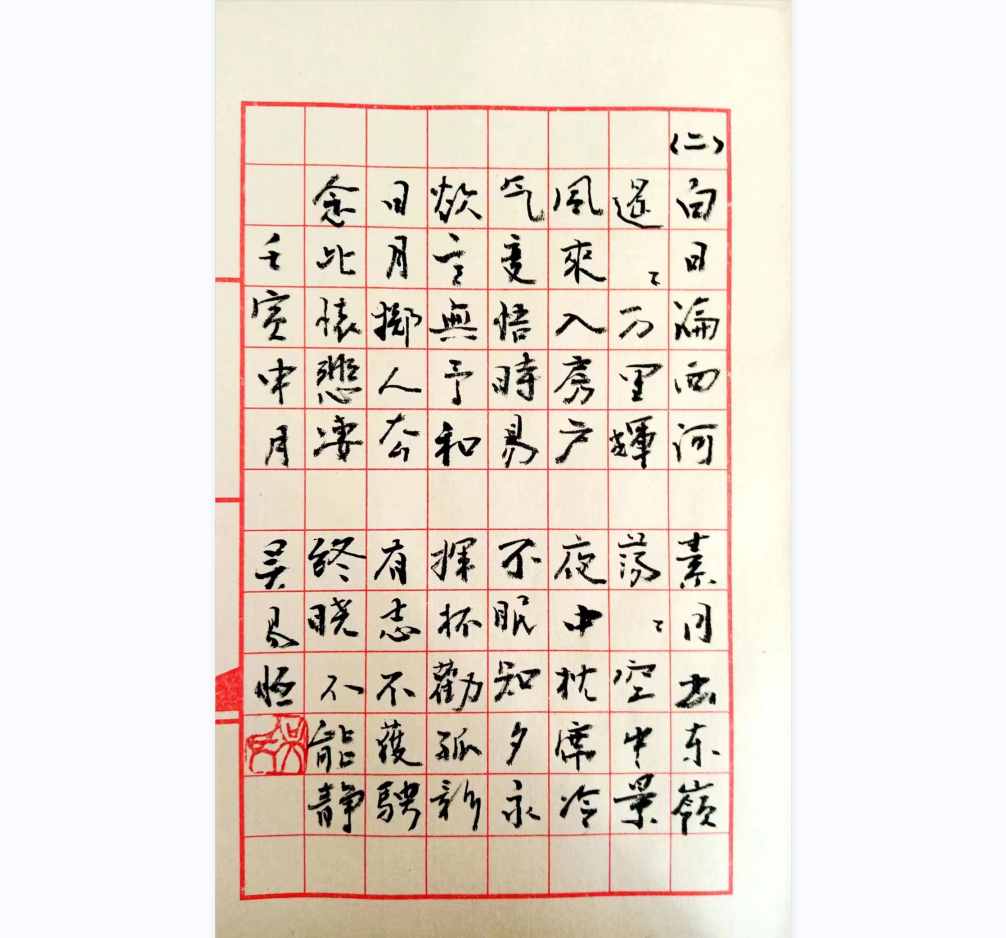 （二）白日淪西河 素月出东嶺
遥〻万里輝 蕩〻空中景
風來入房户 夜中枕席冷
气变悟時易 不眠知夕永
欲言無予和 揮杯勸孤影
日月擲人去 有志不獲騁
念此懷悲凄 終曉不能静
壬寅申月 吴易恒